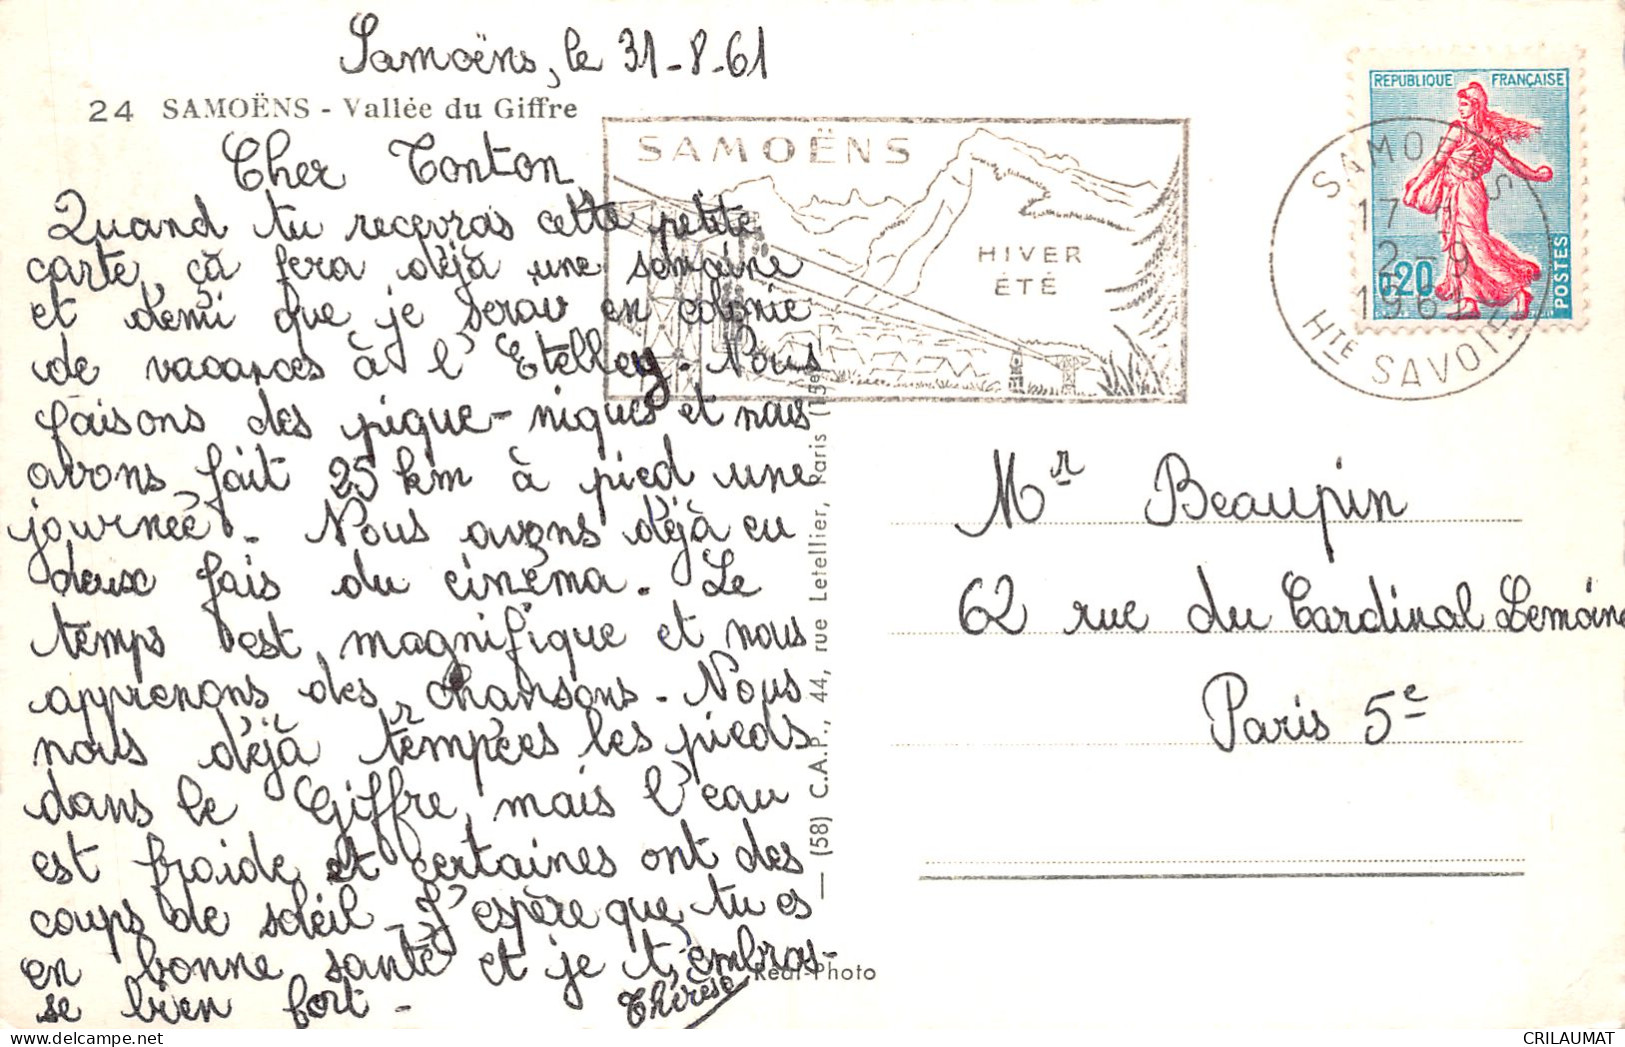 Samoëns, le 31-8-61
24 SAMOËNS - Vallée du Giffre
Cher Tonton
Quand tu recevras cette petite
carte, çà fera déjà une semaine
et demi que je serai en colonie
de vacances à l'Etelley. Nous
faisons des pique-niques et nous
avons fait 25 km à pied une
journée. Nous avons déjà eu
deux fois du cinéma. Le
temps est magnifique et nous
apprenons des chansons. Nous
nous déjà tempées les pieds
dans le Giffre, mais l'eau
est froide et certaines ont des
coups de soleil. J'espère que tu es
en bonne santé et je t'embras-
se bien fort.
Thérèse
SAMOËNS
HIVER
ÉTÉ
REPUBLIQUE FRANÇAISE
0,20
POSTES
SAMOENS
17 H
2-9
1961
HTE SAVOIE
Mr Beaupin
62 rue du Cardinal Lemoine
Paris 5e
— (58) C.A.P., 44, rue Letellier, Paris (15e)
Réal-Photo
CRILAUMAT